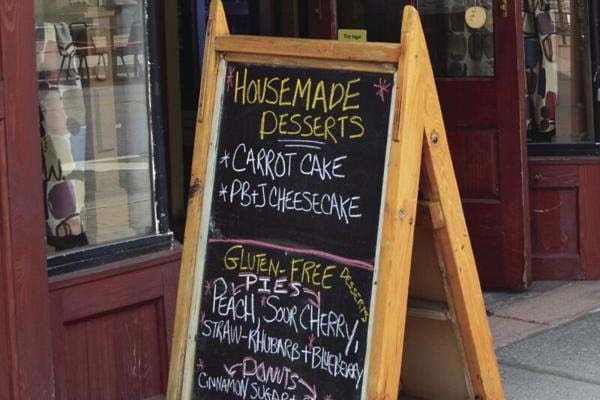 HOUSEMADE
DESSERTS
*CARROT CAKE
*PB+J CHEESECAKE
GLUTEN-FREE DESSERTS
PIES
PEACH, SOUR CHERRY,
STRAW-RHUBARB + BLUEBERRY
DONUTS
CINNAMON SUGAR +